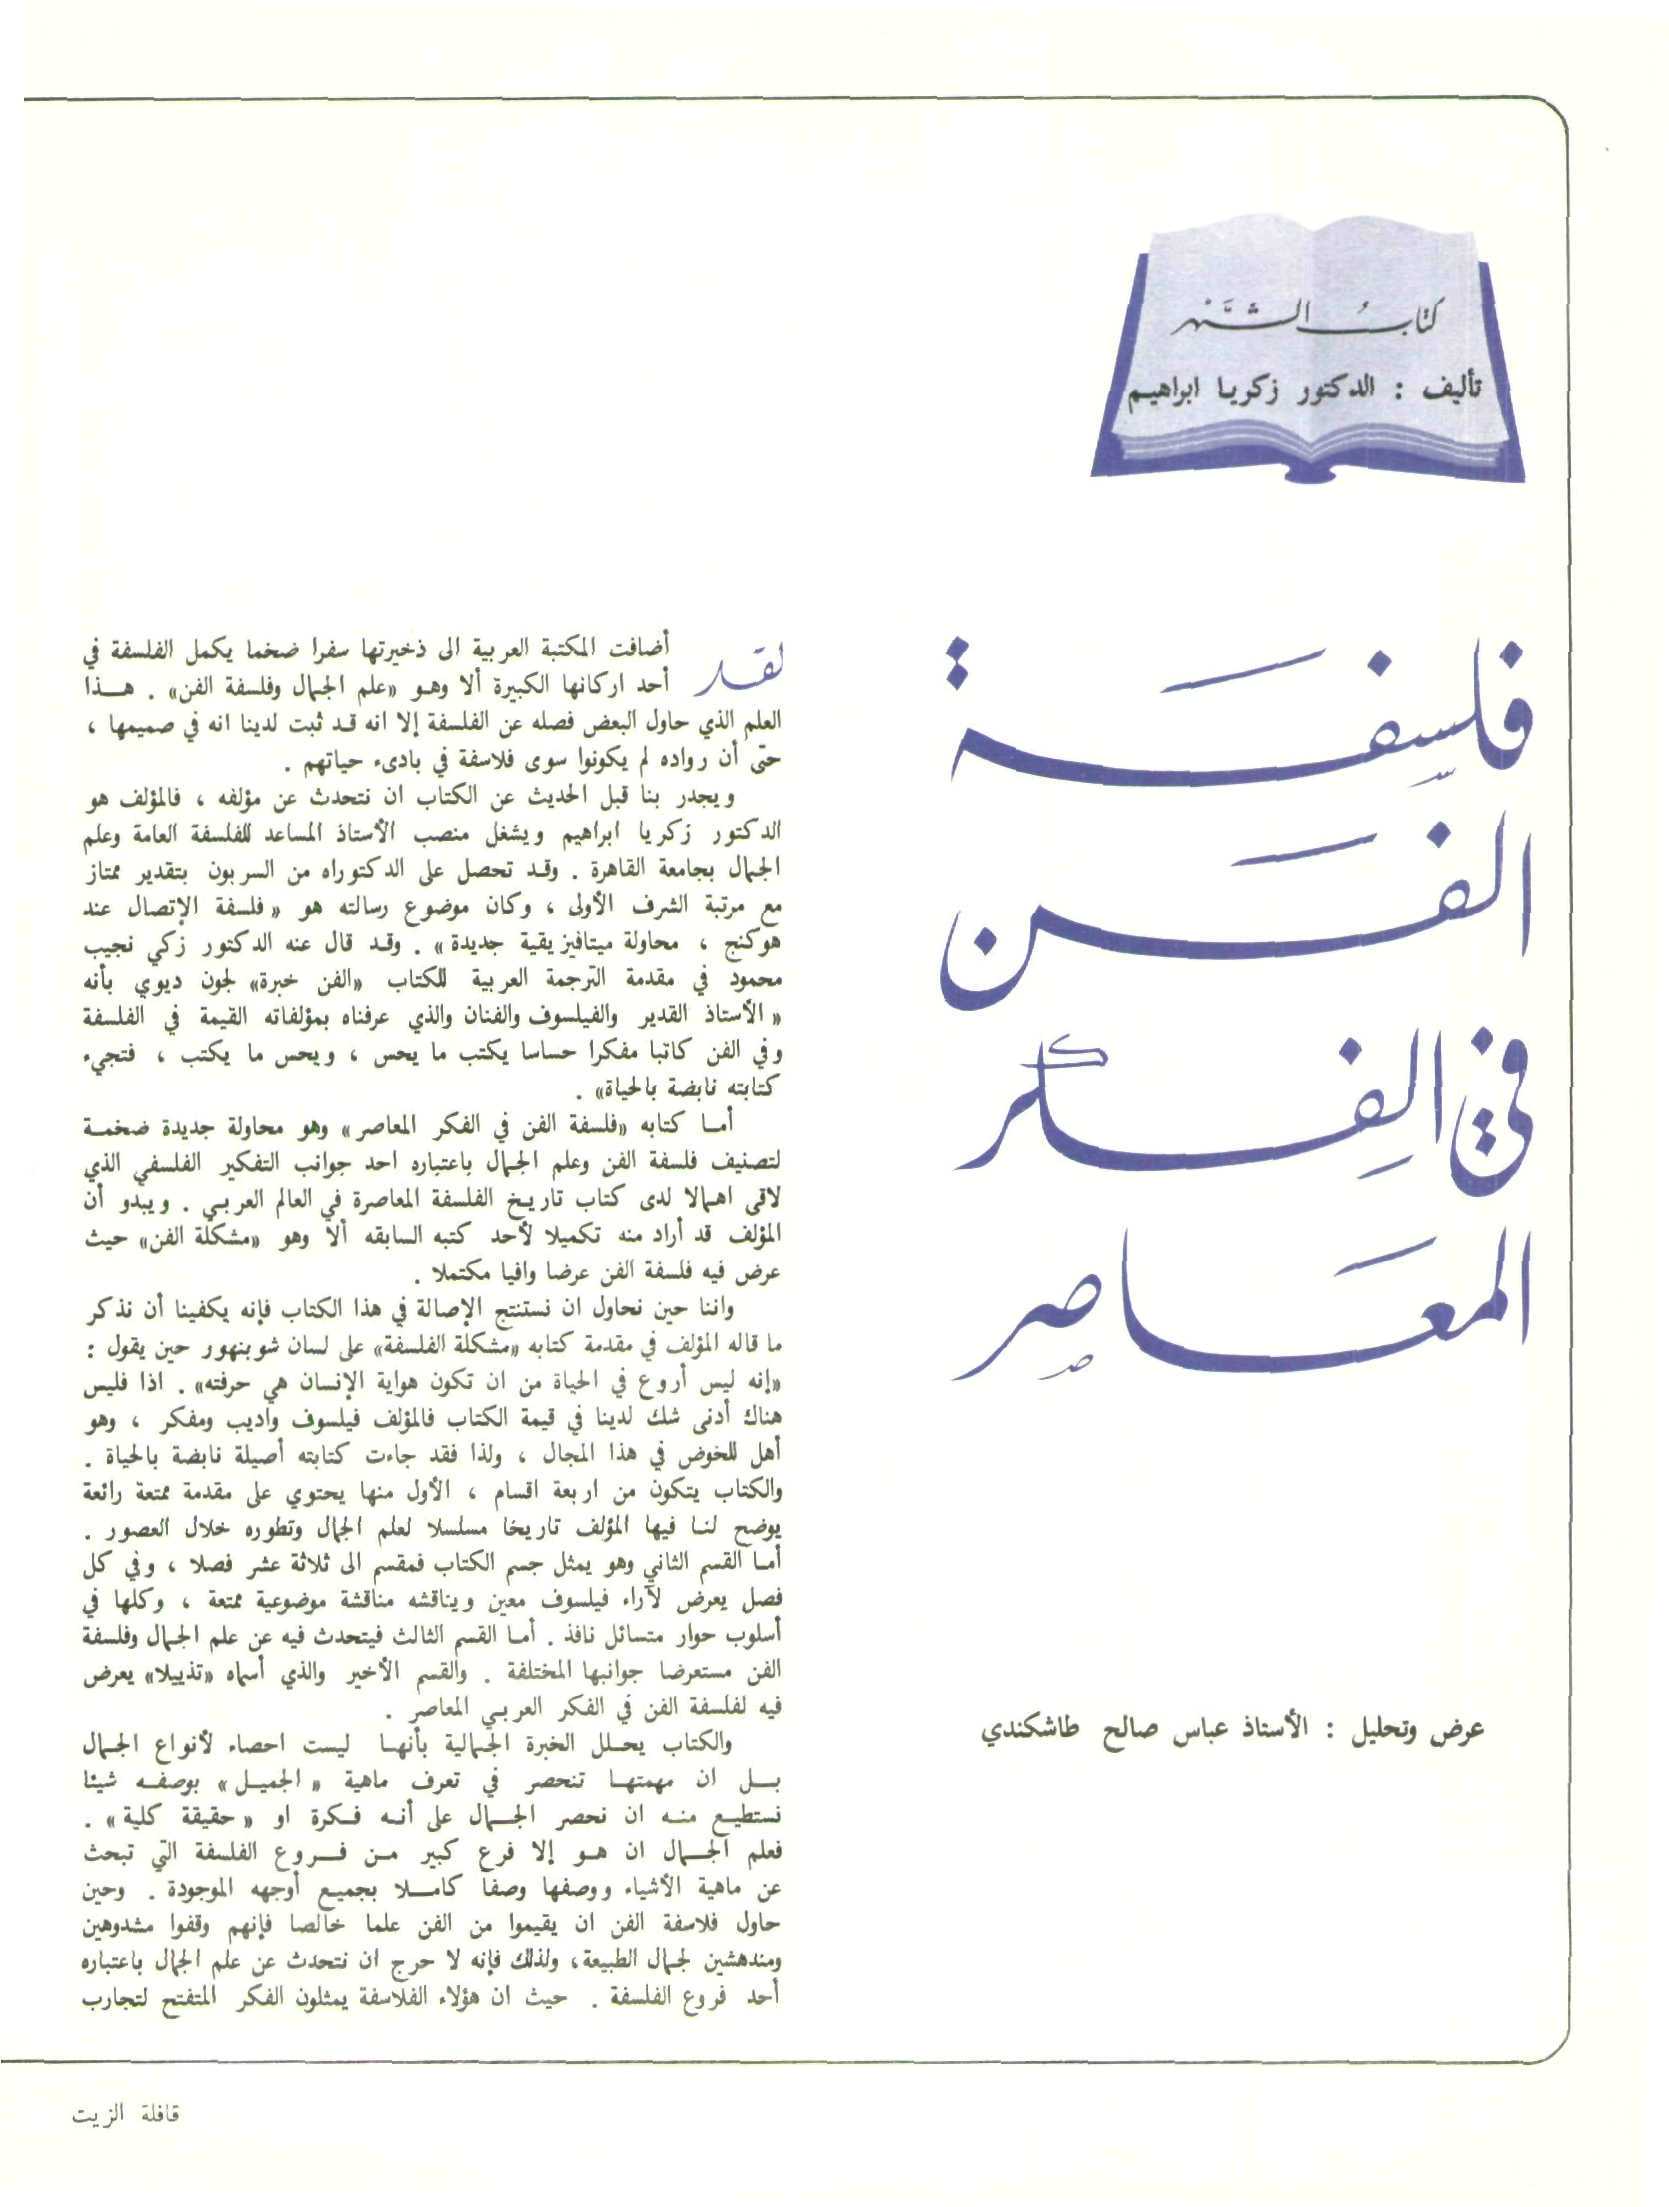 كتابُ الشَّهْر
تأليف : الدكتور زكريا ابراهيم
فلسفَة
الفَن
في الفِكر
المعَاصِر
عرض وتحليل : الأستاذ عباس صالح طاشكندي
لقد أضافت المكتبة العربية الى ذخيرتها سفرا ضخما يكمل الفلسفة في
أحد اركانها الكبيرة ألا وهو «علم الجمال وفلسفة الفن» . هذا
العلم الذي حاول البعض فصله عن الفلسفة إلا انه قد ثبت لدينا انه في صميمها ،
حتى أن رواده لم يكونوا سوى فلاسفة في بادىء حياتهم .
ويجدر بنا قبل الحديث عن الكتاب ان نتحدث عن مؤلفه ، فالمؤلف هو
الدكتور زكريا ابراهيم ويشغل منصب الأستاذ المساعد للفلسفة العامة وعلم
الجمال بجامعة القاهرة . وقد تحصل على الدكتوراه من السربون بتقدير ممتاز
مع مرتبة الشرف الأولى ، وكان موضوع رسالته هو « فلسفة الإتصال عند
هوكنج ، محاولة ميتافيزيقية جديدة» . وقد قال عنه الدكتور زكي نجيب
محمود في مقدمة الترجمة العربية للكتاب «الفن خبرة» لجون ديوي بأنه
« الأستاذ القدير والفيلسوف والفنان والذي عرفناه بمؤلفاته القيمة في الفلسفة
وفي الفن كاتبا مفكرا حساسا يكتب ما يحس ، ويحس ما يكتب ، فتجيء
كتابته نابضة بالحياة» .
أما كتابه «فلسفة الفن في الفكر المعاصر» وهو محاولة جديدة ضخمة
لتصنيف فلسفة الفن وعلم الجمال باعتباره احد جوانب التفكير الفلسفي الذي
لاقى اهمالا لدى كتاب تاريخ الفلسفة المعاصرة في العالم العربي . ويبدو أن
المؤلف قد أراد منه تكميلا لأحد كتبه السابقه ألا وهو «مشكلة الفن» حيث
عرض فيه فلسفة الفن عرضا وافيا مكتملا .
واننا حين نحاول ان نستنتج الإصالة في هذا الكتاب فإنه يكفينا أن نذكر
ما قاله المؤلف في مقدمة كتابه «مشكلة الفلسفة» على لسان شوبنهور حين يقول :
«إنه ليس أروع في الحياة من ان تكون هواية الإنسان هي حرفته» . اذا فليس
هناك أدنى شك لدينا في قيمة الكتاب فالمؤلف فيلسوف واديب ومفكر ، وهو
أهل للخوض في هذا المجال ، ولذا فقد جاءت كتابته أصيلة نابضة بالحياة .
والكتاب يتكون من اربعة اقسام ، الأول منها يحتوي على مقدمة ممتعة رائعة
يوضح لنا فيها المؤلف تاريخا مسلسلا لعلم الجمال وتطوره خلال العصور .
أما القسم الثاني وهو يمثل جسم الكتاب فمقسم الى ثلاثة عشر فصلا ، وفي كل
فصل يعرض لآراء فيلسوف معين ويناقشه مناقشة موضوعية ممتعة ، وكلها في
أسلوب حوار متسائل نافذ . أما القسم الثالث فيتحدث فيه عن علم الجمال وفلسفة
الفن مستعرضا جوانبها المختلفة . والقسم الأخير والذي أسماه «تذييلا» يعرض
فيه لفلسفة الفن في الفكر العربي المعاصر .
والكتاب يحلل الخبرة الجمالية بأنها ليست احصاء لأنواع الجمال
بل ان مهمتها تنحصر في تعرف ماهية « الجميل » بوصفه شيئا
نستطيع منه ان نحصر الجمال على أنه فكرة او « حقيقة كلية » .
فعلم الجمال ان هو إلا فرع كبير من فروع الفلسفة التي تبحث
عن ماهية الأشياء ووصفها وصفا كاملا بجميع أوجهه الموجودة . وحين
حاول فلاسفة الفن ان يقيموا من الفن علما خالصا فإنهم وقفوا مشدوهين
ومندهشين لجمال الطبيعة، ولذلك فإنه لا حرج ان نتحدث عن علم الجمال باعتباره
أحد فروع الفلسفة . حيث ان هؤلاء الفلاسفة يمثلون الفكر المتفتح لتجارب
قافلة الزيت